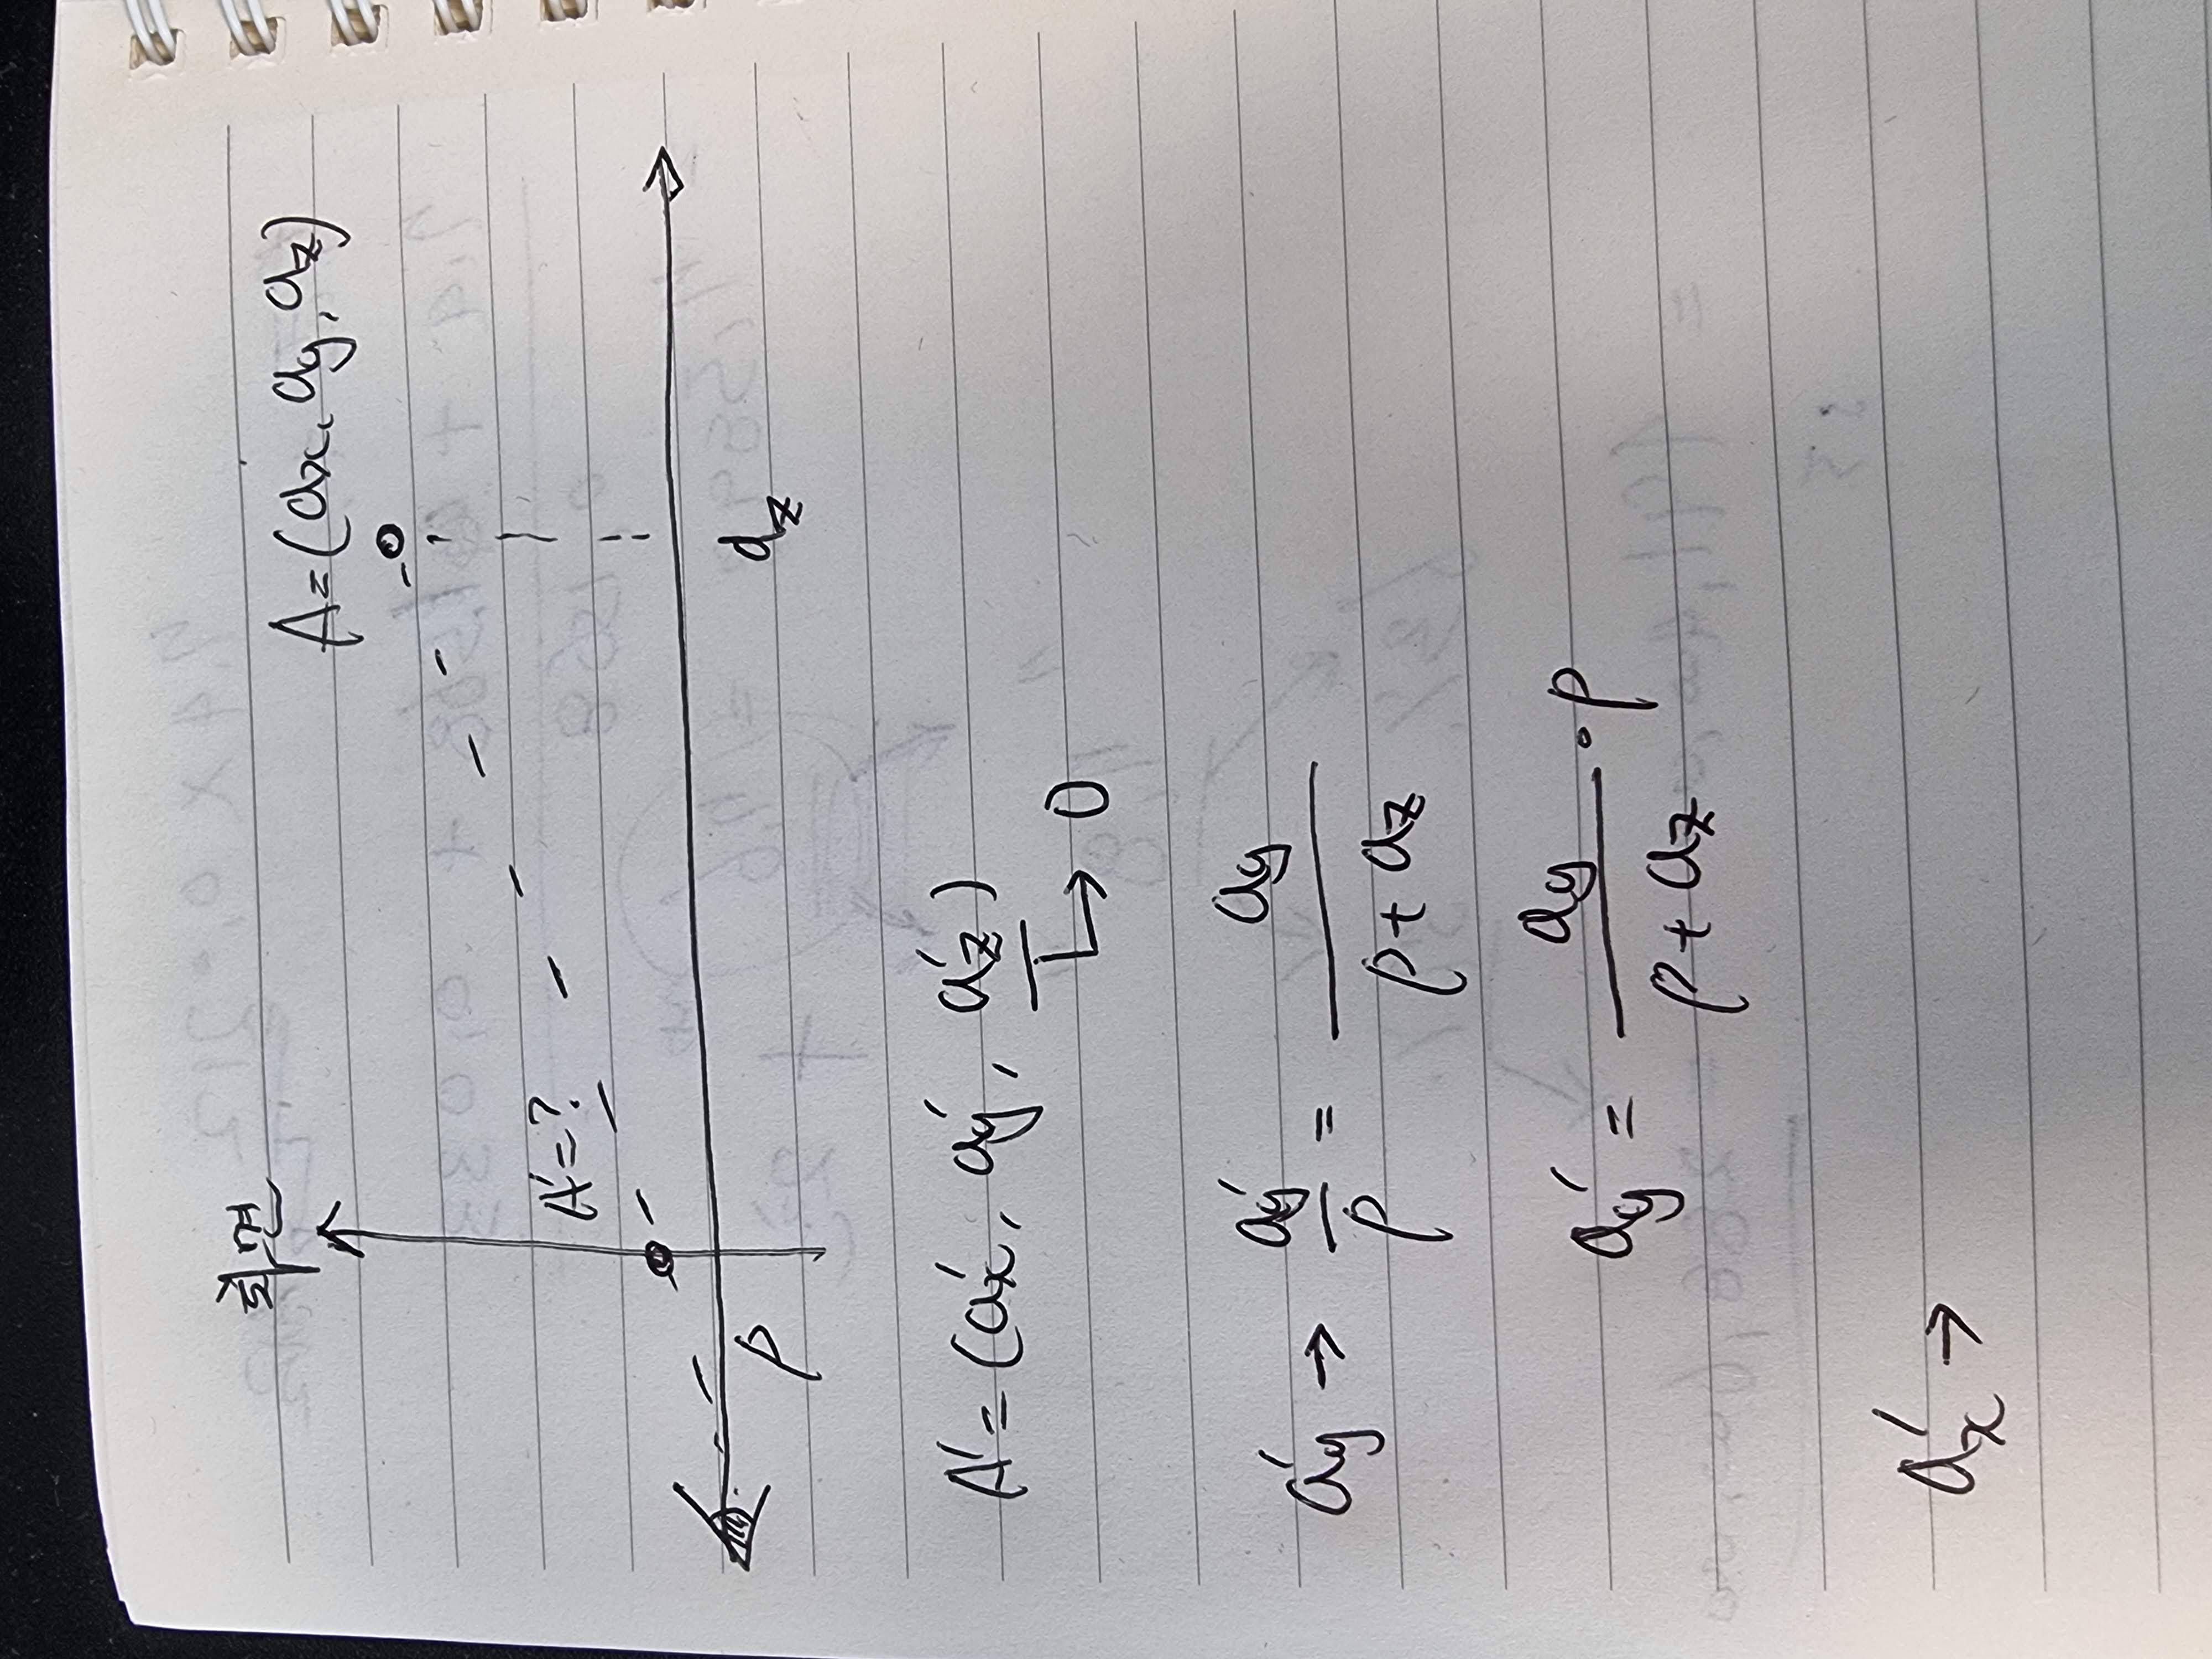 화면
A=(ax, ay, az)
A'=?
p
az
A'=(ax', ay', az')
→ 0
ay' → ay'/p = ay/(p+az)
ay' = ay/(p+az) · p
ax' →